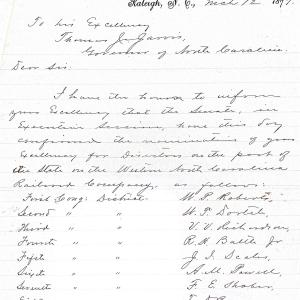 Raleigh, N. C., Mch 12 187
To his Excellency
Thomas J. Jarvis,
Governor of North Carolina.
Dear Sir:
I have the honor to inform
your Excellency that the Senate, in
Executive Session, have this day
confirmed the nominations of your
Excellency for Directors on the part of
the State on the Western North Carolina
Railroad Company, as follows:
First Cong: District W. P. Roberts
Second " " W. T. Dortch
Third " " V. V. Richardson
Fourth " " R. H. Battle Jr
Fifth " " J. I. Scales
Sixth " " A. M. Powell
Seventh " " F. E. Shober